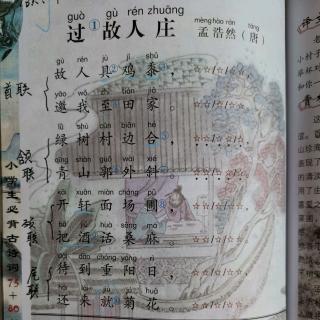 guò gù rén zhuāng
过①故人庄
mèng hào rán táng
孟浩然（唐）
gù rén jù jī shǔ
故人具②鸡黍，
yāo wǒ zhì tián jiā
邀我至田家。
lǜ shù cūn biān hé
绿树村边合，
qīng shān guō wài xié
青山郭外斜。
kāi xuān miàn cháng pǔ
开轩面场圃，
bǎ jiǔ huà sāng má
把酒话桑麻。
dài dào chóng yáng rì
待到重阳日，
hái lái jiù jú huā
还来就菊花。
首联
颔联
颈联
尾联
小学生必背古诗词75+80